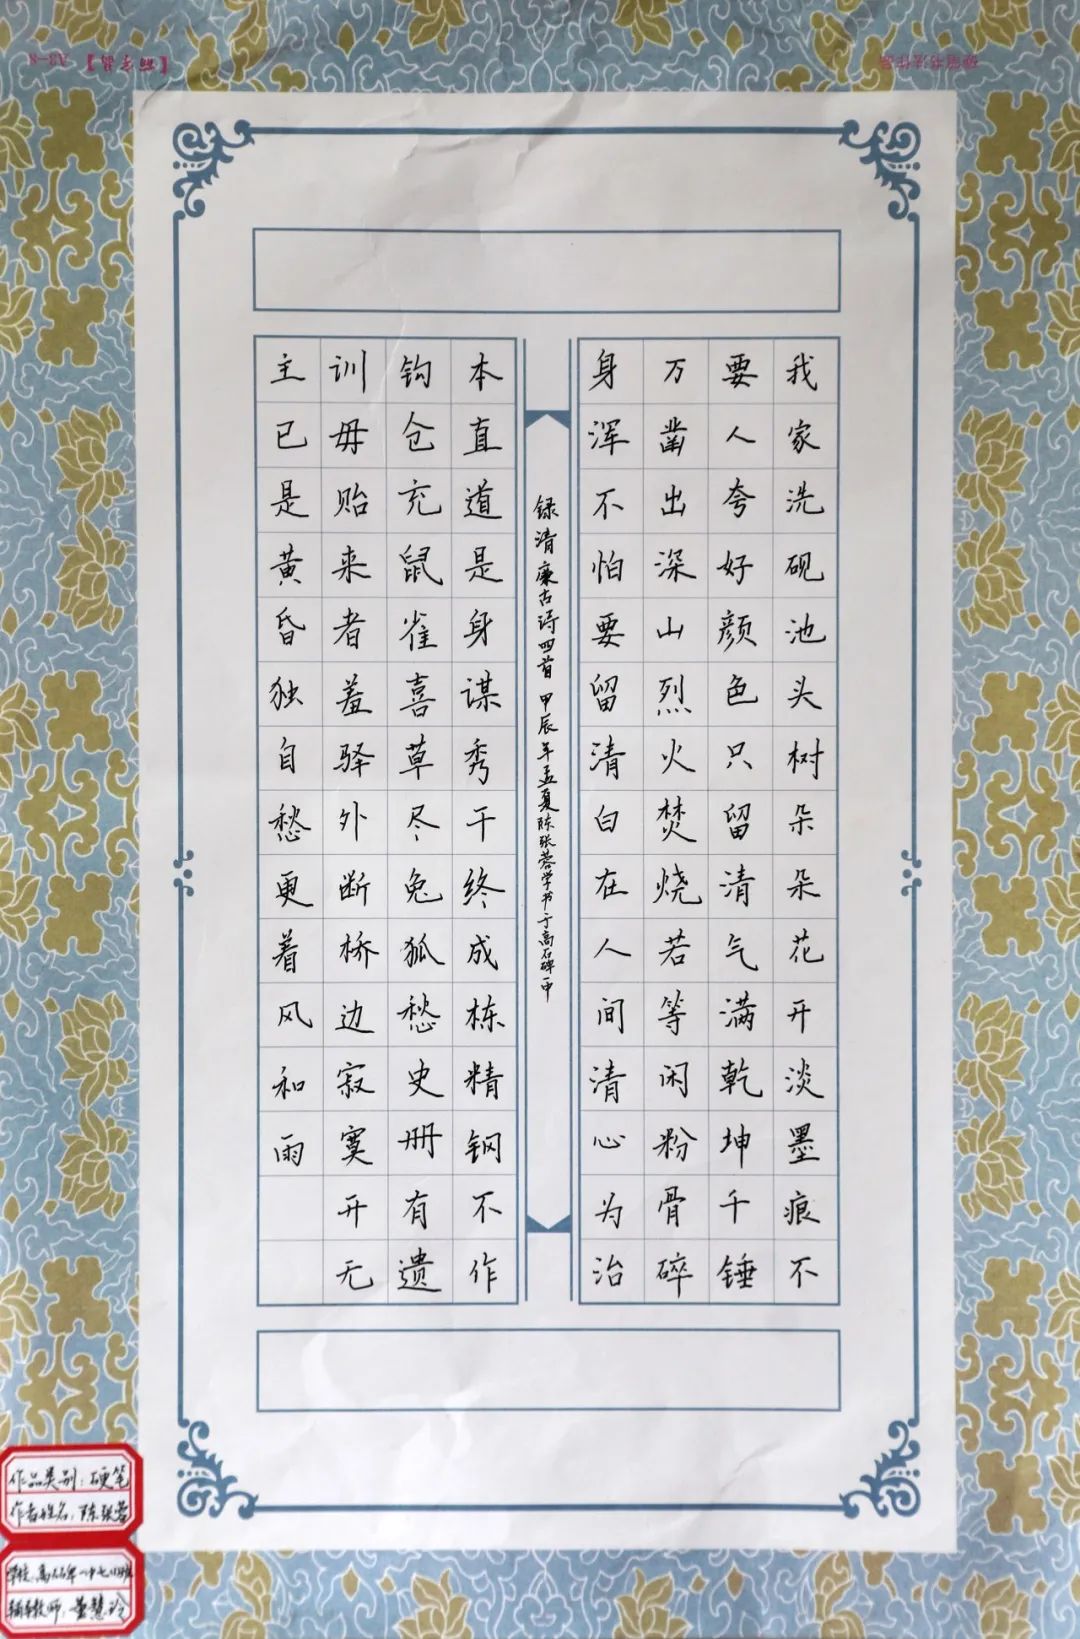 我家洗砚池头树朵朵花开淡墨痕不
要人夸好颜色只留清气满乾坤千锤
万凿出深山烈火焚烧若等闲粉骨碎
身浑不怕要留清白在人间清心为治
本直道是身谋秀干终成栋精钢不作
钩仓充鼠雀喜草尽兔狐愁史册有遗
训毋贻来者羞驿外断桥边寂寞开无
主已是黄昏独自愁更着风和雨
录清廉古诗四首 甲辰年孟夏陈张蓉学书于高石碑一中
作品类别：硬笔
作者姓名：陈张蓉
学校：高石碑一中七
辅导教师：董慧玲